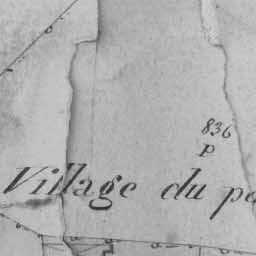 836
p
Village du pa